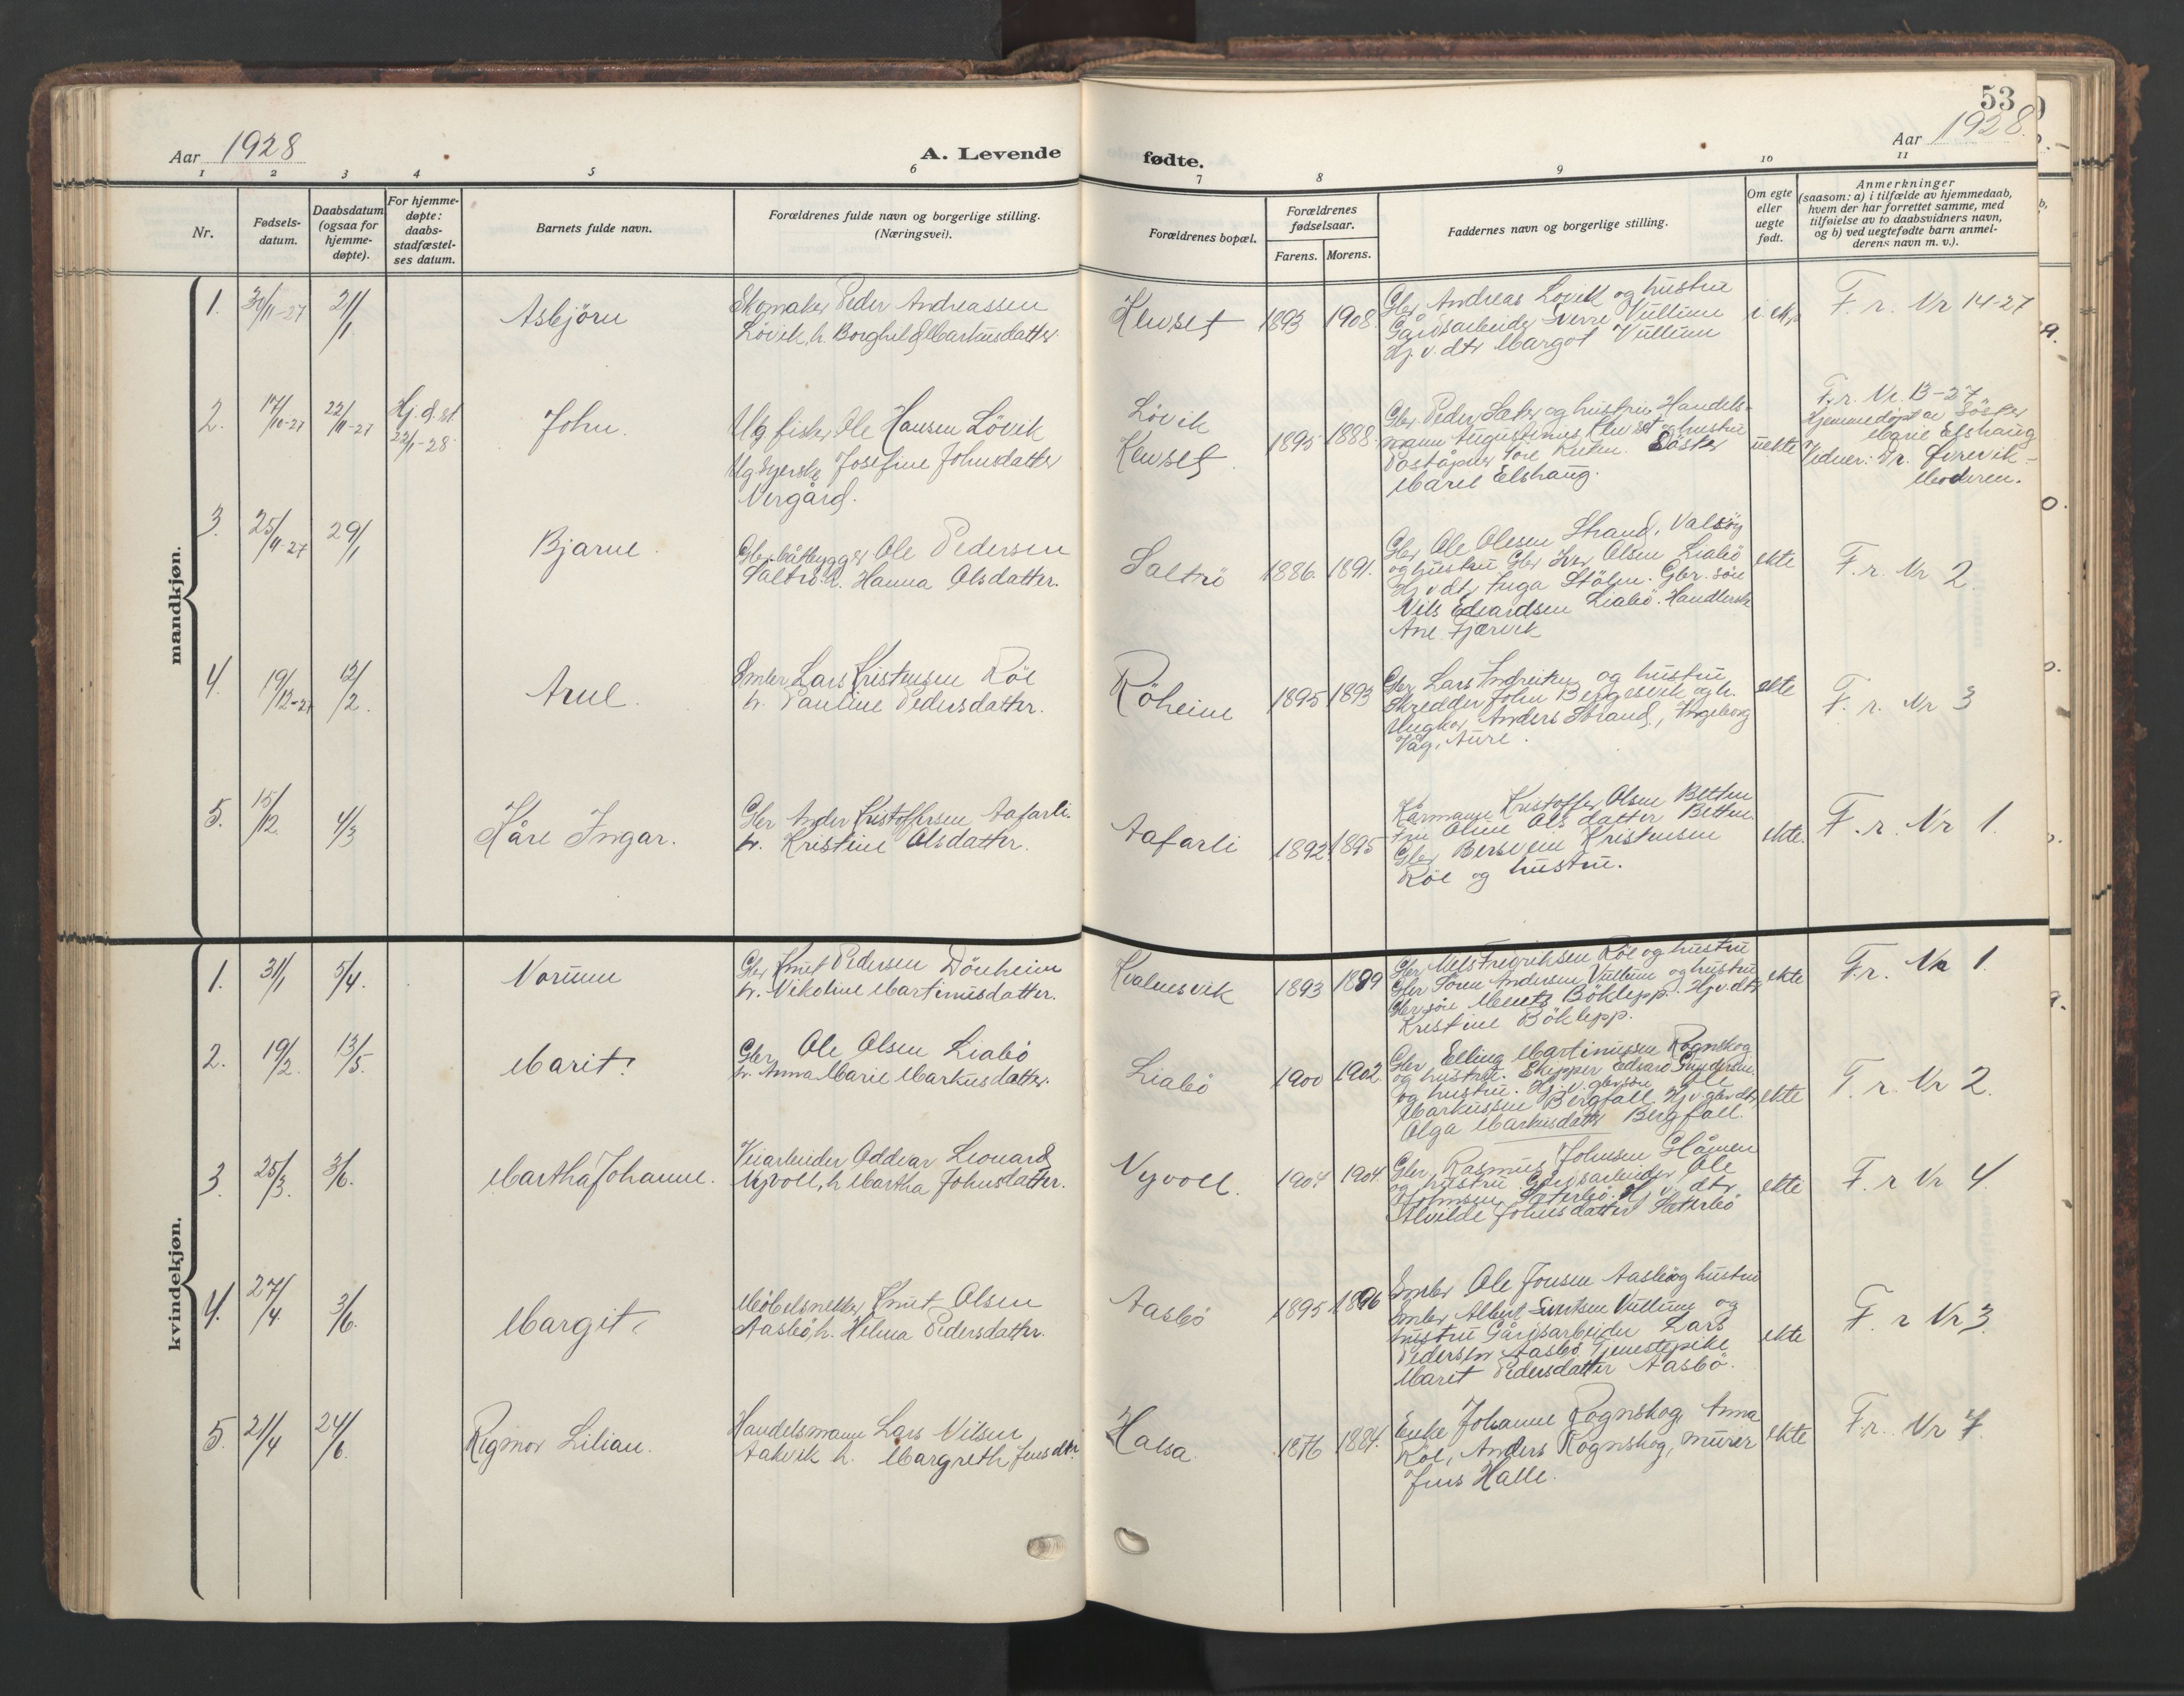 53
Aar 1928
A. Levende
fødte.
Aar 1928.
1 2 3 4 5 6 7 8 9 10 11
Nr.
Fødsels-
datum.
Daabsdatum
(ogsaa for
hjemme-
døpte).
For hjemme-
døpte:
daabs-
stadfæstel-
ses datum.
Barnets fulde navn.
Forældrenes fulde navn og borgerlige stilling.
(Næringsvei).
Forældrenes bopæl.
Forældrenes
fødselsaar.
Farens. Morens.
Faddernes navn og borgerlige stilling.
Om egte
eller
uegte
født.
Anmerkninger
(saasom: a) i tilfælde av hjemmedaab,
hvem der har forrettet samme, med
tilføielse av to daabsvidners navn,
og b) ved uegtefødte barn anmel-
derens navn m. v.).
mandkjøn.
1. 21/1
Asbjörn
Skomaker Peder Andreassen
Lövik, h. Borghild Markusdatter.
Henset 1893 1908.
Gbr Andreas Lovik og hustru
Gårdsarbeider Sverre Vullum
Hj. v. dtr Margot Vullum
F. r. Nr 14-27
2. 17/10-27 22/11-27
Hj. d. st
22/1-28
John.
Ug fisker Ole Hansen Lövik
Ug Syerske Josefine Johnsdatter
Nergård.
Lövik
Henset. 1895 1888.
Gbr Peder Sæter og hustru, Handels-
mann Augustinius Henset og hustru
Söster
Marie Elshaug.
uekte
F. r. Nr. 13-27
Hjemmedøpt av Söster
Marie Elshaug
Vidner: Dr.
Moderen.
3. 25/11-27 29/1
Bjarne.
Gbr. båtbygger Ole Pedersen
Saltrö. h. Hanna Olsdatter.
Saltrö 1886. 1891.
Gbr Ole Olesen Strand, Valsöy
og hustru Gbr Iver Olsen Liabö
Hj v dtr Inga Stölen. Gbr. sön
Nils Edvardsen Liabö. Handlersk
Ane Fjærvik
ekte
F. r. Nr 2.
4. 19/12-27 12/2.
Arne.
Smbr Lars Kristensen Röe
h. Pauline Pedersdatter.
Röheim 1895 1893
Gbr Lars og hustru
Skredder John Bergesvik og h.
Ungkar Anders Strand, Ingeborg
Våg, Aure.
ekte
F. r. Nr 3
5. 15/12. 4/3
Kåre Ingar.
Gbr Ander Kristoffersen Aafarli.
h. Kristine Olsdatter.
Aafarli 1892 1895
Kårmann Kristoffer Olsen Betten
fru Oline Olsdatter Betten.
Gbr Bersvein Kristensen
Röe og hustru.
ekte.
F. r. Nr 1.
kvindekjøn.
1. 31/1 5/4.
Norunn
Gbr Knut Pedersen Dönheim
h. Nikoline Martinusdatter.
Kvalnesvik 1893 1899
Gbr Nils Fredriksen Röe og hustru
Gbr Sören Andersen Vullum og hustru
Gbr sön Böklepp. Hj v. dtr
Kristine Böklepp.
ekte
F. r. Nr 1.
2. 19/2. 13/5.
Marit.
Gbr Ole Olsen Liabö
h. Anna Marie Markusdatter.
Liabö 1900 1902.
Gbr Elling Martinussen Rognskog
og hustru. Skipper Edvard Gundersen.
og hustru. Hj. v. gbr sön Ole
Markussen Bergfall. Hj v. gbr dtr
Olga Markusdatter Bergfall.
ekte
F. r. Nr 2.
3. 25/3. 3/6.
Martha Johanne.
Veiarbeider Oddvar Leonard
Nyvoll, h Martha Johnsdatter.
Nyvoll. 1904 1904.
Gbr. Rasmus Johnsen Glåmen
og hustru. Gårdsarbeider Ole
Johnsen Sæterbö. Hj v. dtr
Alvilde Johnsdatter Sæterbö
ekte
F. r Nr 4.
4. 27/4. 3/6.
Margit.
Möbelsnekker Knut Olsen
Aasbö, h. Helma Pedersdatter.
Aasbö 1895 1896
Smbr Ole Jonsen Aasbö og hustru
Smbr Albert Sivertsen Vullum og
hustru Gårdsarbeider Lars
Pedersen Aasbö. Tjenestepike
Marit Pedersdatter Aasbö.
ekte
F. r Nr 3.
5. 21/4 24/6.
Rigmor Lilian.
Handelsmann Lars Nilsen
Aakvik h. Margreth Jensdtr.
Halsa. 1876 1884.
Enke Johanne Rognskog, Anna
Röe, Anders Rognskog, murer
Jens Halle.
ekte
F. r. Nr 7.